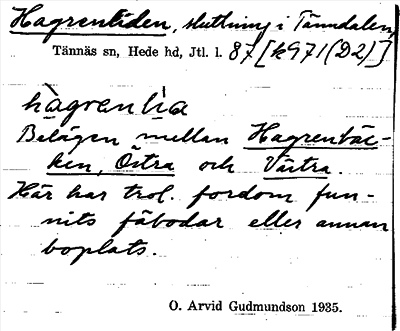 Hagrentiden, sluttning i Tänndalen,
Tännäs sn, Hede hd, Jtl. l. 87 [k971(D2)]
hàgrenlìa
Belägen mellan Hagrenbäc-
ken, Östra och Västra.
Här har trol. fordom fun-
nits fäbodar eller annan
boplats.
O. Arvid Gudmundson 1935.